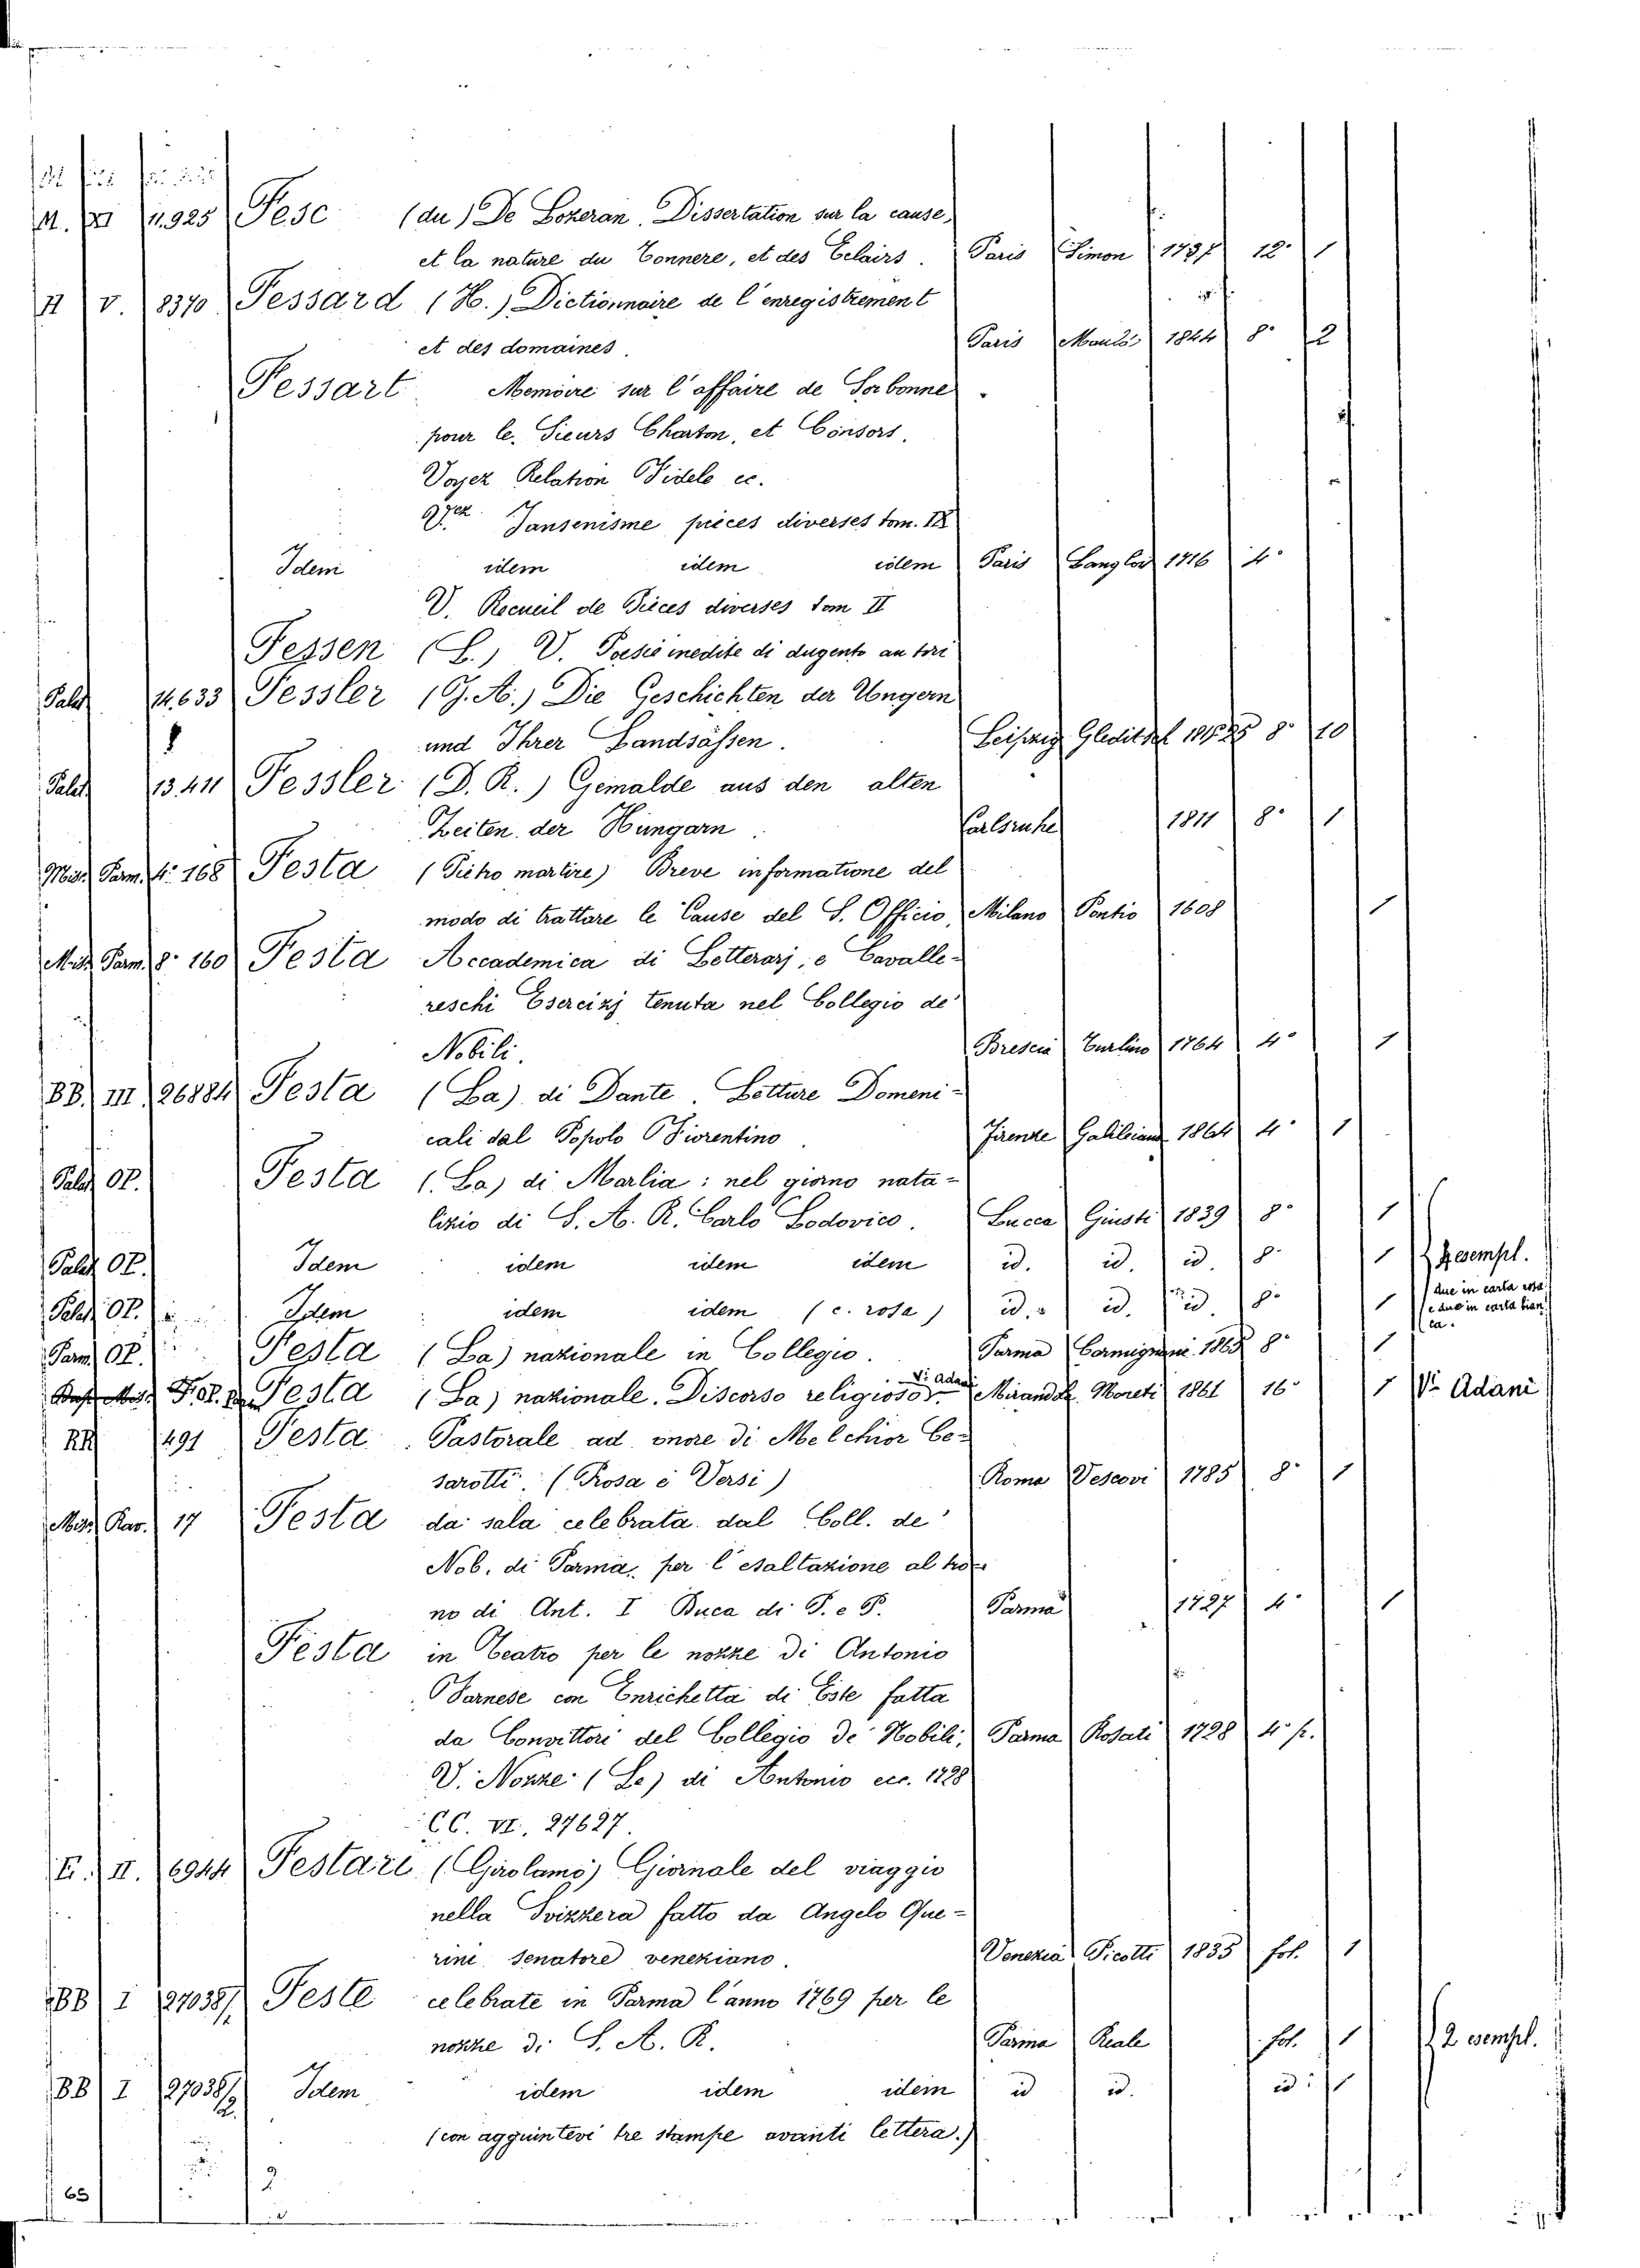 11.925 Fesc (du) De Lozeran. Dissertation sur la cause,
et la nature du Tonnere, et des Eclairs. Paris Simon 1737 12° 1
II V. 8370 Fessard (H.) Dictionnaire de l'enregistrement
et des domaines. Paris 1844 8° 2
Fessart Memoire sur l'affaire de Sorbonne
pour le. Sieurs Charton, et Consors.
Voyez Relation Fidele ec.
Jansenisme pieces diverses tom. IX
Idem idem idem idem Paris Langlois 1716 4°
V. Recueil de Pieces diverses tom II
Fessen (L.) V. Poesie inedite di dugento autori
Palat 14.633 Fessler (J. A.) Die Geschichten der Ungern
und Ihrer Landsässen. Leipzig Gleditsch 8° 10
Palat 13.411 Fessler (D. R.) Gemalde aus den alten
Zeiten der Hungarn. Carlsruhe 1811 8° 1
Misc. Parm. 4° 168 Festa (Pietro martire) Breve informatione del
modo di trattare le Cause del S. Officio, Milano Pontio 1608 1
Misc. Parm. 8° 160 Festa Accademica di Letterarj, e Cavalle-
reschi Esercizj tenuta nel Collegio de'
Nobili. Brescia Turlino 1764 4° 1
BB. III 26884 Festa (La) di Dante. Letture Domeni-
cali dal Popolo Fiorentino. Firenze Galileiana 1864 4° 1
Palat OP. Festa (La) di Marlia: nel giorno nata-
lizio di S. A. R. Carlo Lodovico. Lucca Giusti 1839 8° 1
Palat OP. Idem idem idem idem id. id. id. 8° 1
Palat OP. Idem idem idem (c. rosa) id. id. id. 8° 1
due in carta rosa
e due in carta bian
ca.
Parm. OP. Festa (La) nazionale in Collegio. Parma Carmignani 8° 1
Festa (La) nazionale. Discorso religioso V. Adani Mirandola Moreti 1861 16° 1 V. Adani
RR 491 Festa Pastorale ad onore di Melchior Ce-
sarotti. (Prosa e Versi) Roma Vescovi 1785 8° 1
Misc. Rav. 17 Festa da sala celebrata dal Coll. de'
Nob. di Parma, per l'esaltazione al tro-
no di Ant. I Duca di P. e P. Parma 1727 4° 1
Festa in Teatro per le nozze di Antonio
Farnese con Enrichetta di Este fatta
da Convittori del Collegio de' Nobili, Parma Rosati 1728 4° p.
V. Nozze (Le) di Antonio ecc. 1728
CC. VI. 27627.
II. 6944 Festari (Girolamo) Giornale del viaggio
nella Svizzera fatto da Angelo Que-
rini senatore veneziano. Venezia Picotti 1835 fol. 1
BB I 27038/1 Feste celebrate in Parma l'anno 1769 per le
nozze di S. A. R. Parma Reale fol. 1 2 esempl.
BB I 27038/2. Idem idem idem idem id id. id: 1
(con aggiuntevi tre stampe avanti lettera.)
65